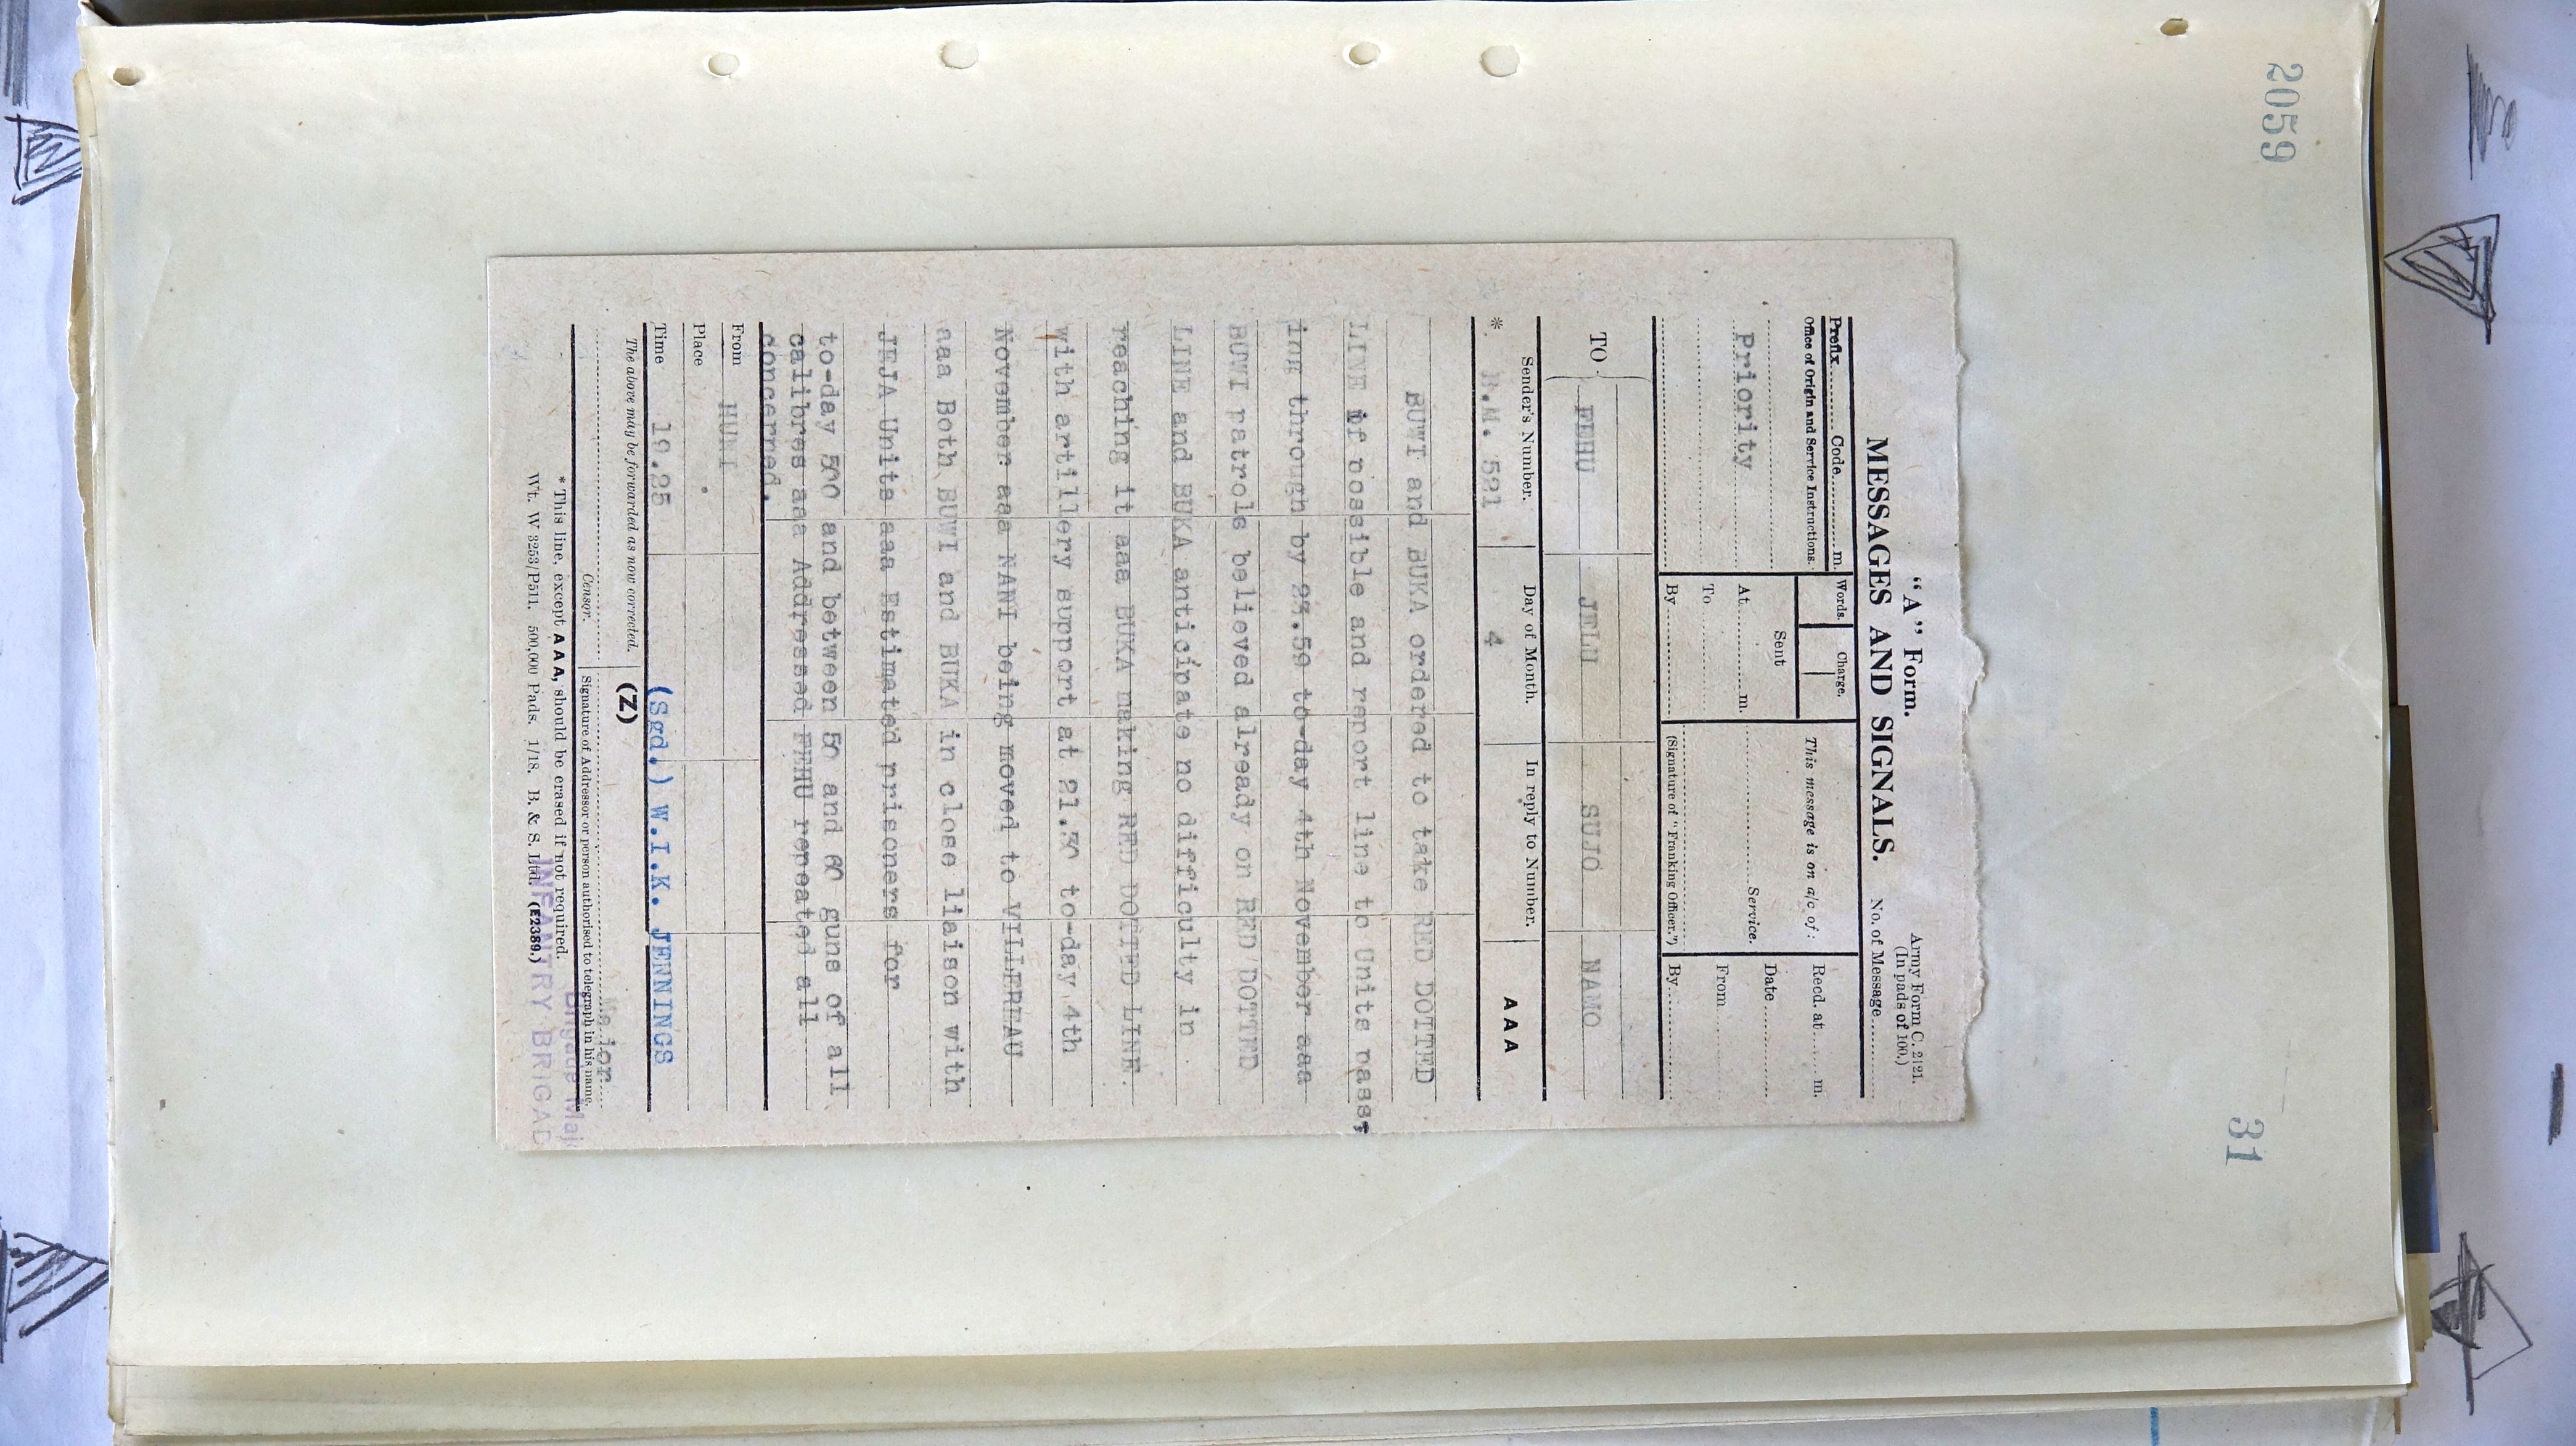 2059
31
"A" Form.
Army Form C. 2121.
(In pads of 100.)
MESSAGES AND SIGNALS.
No. of Message
Prefix Code m.
Office of Origin and Service Instructions.
Priority
Words.
Charge.
Sent
At m.
To
By
This message is on a/c of:
Service.
(Signature of "Franking Officer.")
Recd. at m.
Date
From
By
TO
FEHU JELU SUJO NAMO
Sender's Number.
Day of Month.
In reply to Number.
A A A
* B.M. 521 4
BUWI and BUKA ordered to take RED DOTTED
LINE if possible and report line to Units pass-
ing through by 23.59 to-day 4th November aaa
BUWI patrols believed already on RED DOTTED
LINE and BUKA anticipate no difficulty in
reaching it aaa BUKA making RED DOTTED LINE
with artillery support at 21.30 to-day 4th
November aaa NANI being moved to VILLEREAU
aaa Both BUWI and BUKA in close liaison with
JEJA Units aaa Estimated prisoners for
to-day 500 and between 50 and 60 guns of all
calibres aaa Addressed FEHU repeated all
concerned.
From HUNI
Place
Time 19.25
(Sgd.) W.I.K. JENNINGS
The above may be forwarded as now corrected.
(Z)
Major
Censor.
Signature of Addressor or person authorised to telegraph in his name.
Brigade Maj
* This line, except A A A, should be erased if not required.
INFANTRY BRIGAD
Wt. W 3253/P511. 500,000 Pads. 1/18. B. & S. Ltd. (E2389.)